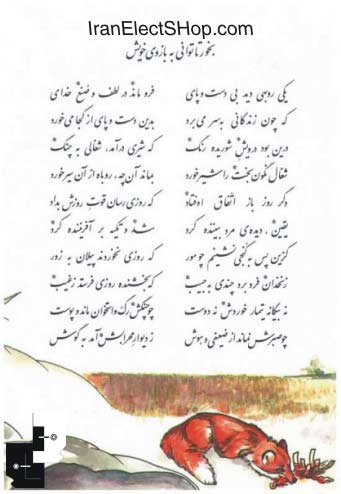 IranElectSHop.com
بخور تا توانی به بازوی خویش
یکی روبهی دید بی دست و پای فرو ماند در لطف و صنع خدای
که چون زندگانی به‌سر می‌برد بدین دست و پای از کجا می‌خورد
درین بود درویش شوریده رنگ که شیری درآمد، شغالی به چنگ
شغال نگون‌بخت را شیر خورد بماند آن‌چه، روباه از آن سیر خورد
دگر روز باز اتفاق اوفتاد که روزی رسان قوت روزش بداد
یقین، دیده‌ی مرد بیننده کرد شد و تکیه بر آفریننده کرد
کزین پس به کنجی نشینم چو مور که روزی نخوردند پیلان به زور
زنخدان فرو برد چندی به جیب که بخشنده روزی فرستد ز غیب
نه بیگانه تیمار خوردش نه دوست چو چنگش رگ و استخوان ماند و پوست
چو صبرش نماند از ضعیفی و هوش ز دیوار محرابش آمد به گوش